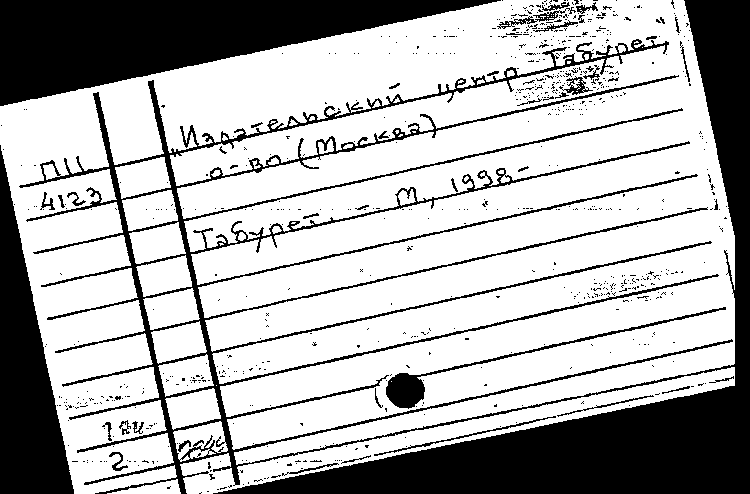 „Издательский центр Табурет,"
П11 о-во (Москва)
4123
Табурет. - М., 1998-
1
2